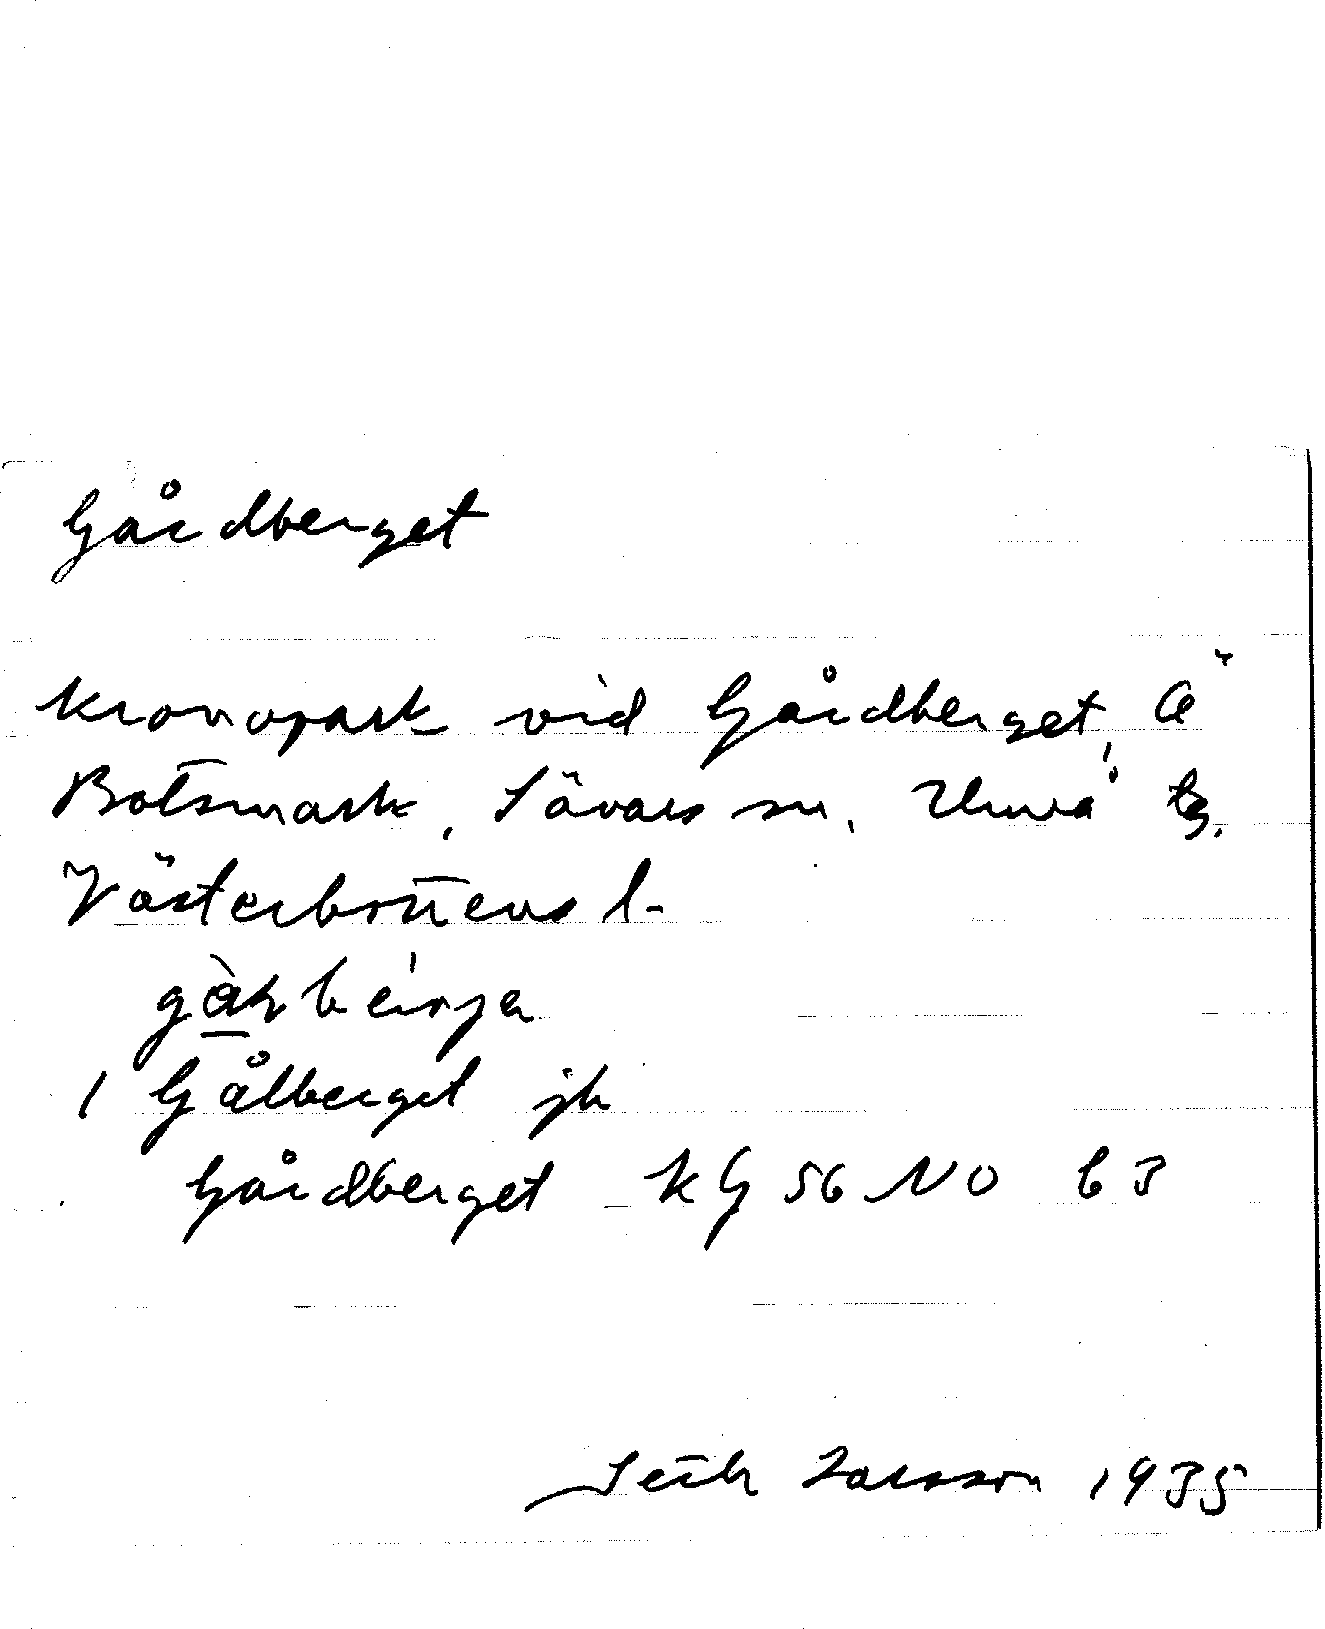 Gårdberget
kronopark vid Gårdberget, Ö
Botsmark, Sävars sn, Umeå tg,
Västerbottens l.
1 Gålberget jb
Gårdberget KG 56 NO 63
Seth Larsson 1935